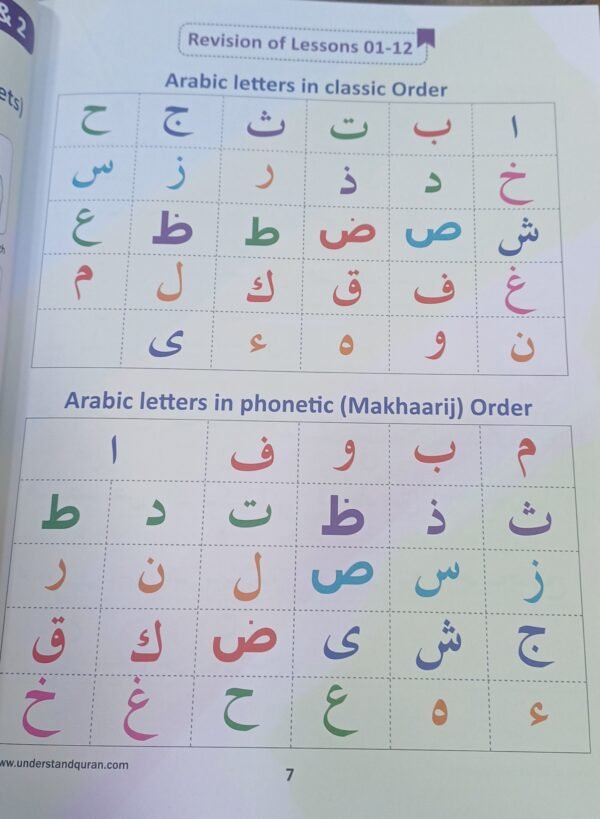 & 2
ets)
Revision of Lessons 01-12
Arabic letters in classic Order
ا ب ت ث ج ح
خ د ذ ر ز س
ش ص ض ط ظ ع
غ ف ق ك ل م
ن و ه ء ى
Arabic letters in phonetic (Makhaarij) Order
م ب و ف ا
ث ذ ظ ت د ط
ز س ص ل ن ر
ج ش ى ض ك ق
ء ه ع ح غ خ
ww.understandquran.com
7